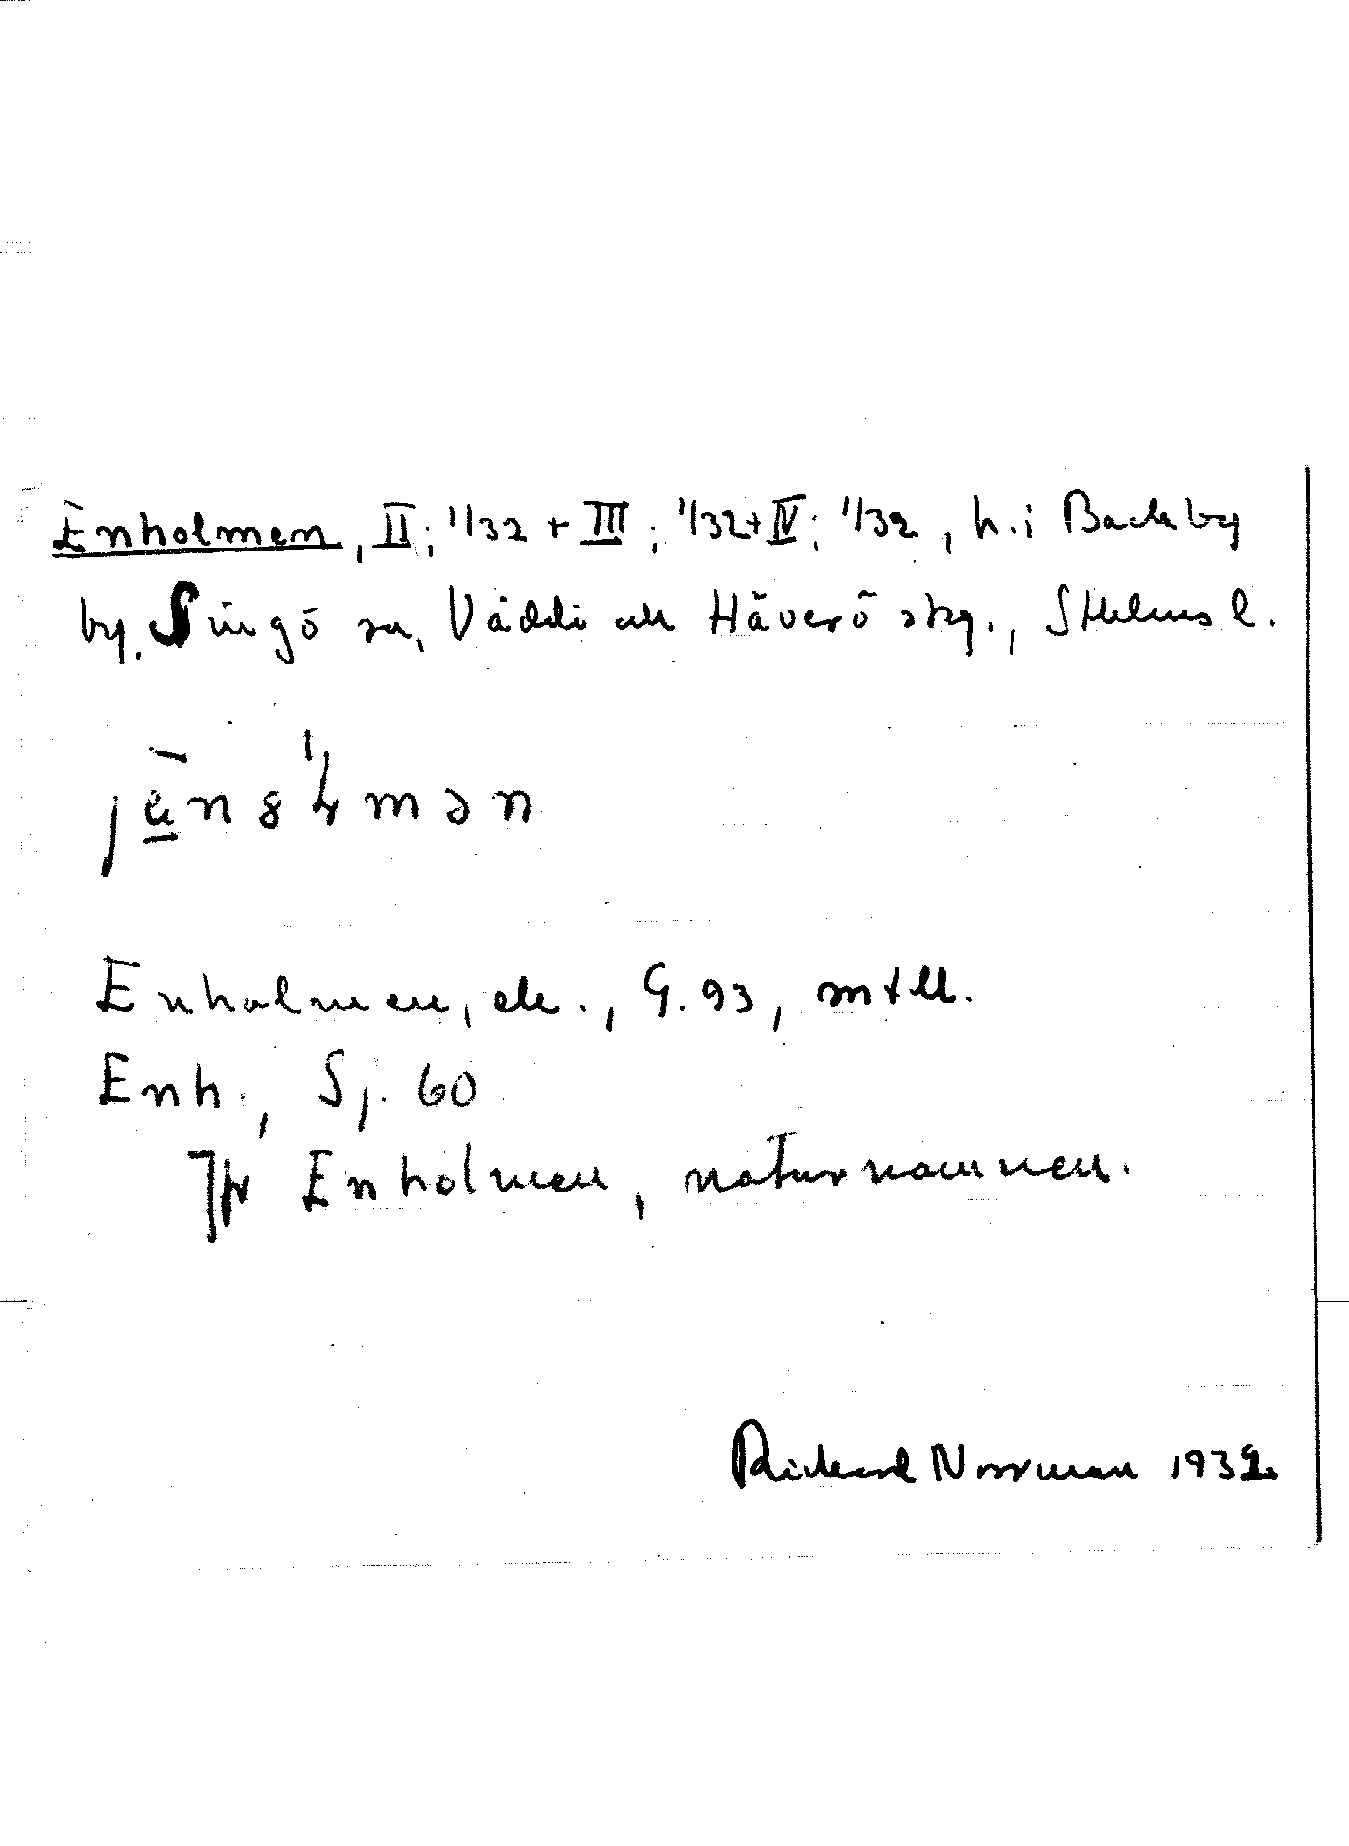 Enholmen, II; 1/32 + III; 1/32 + IV; 1/32, h. i Backby
by, Singö sn, Väddö och Häverö skg., Sthlms l.
Enholmen, ek., G. 93, mtll.
Enh., Sj. 60
Jfr Enholmen, naturnamnen.
Rickard Norrman 1932.